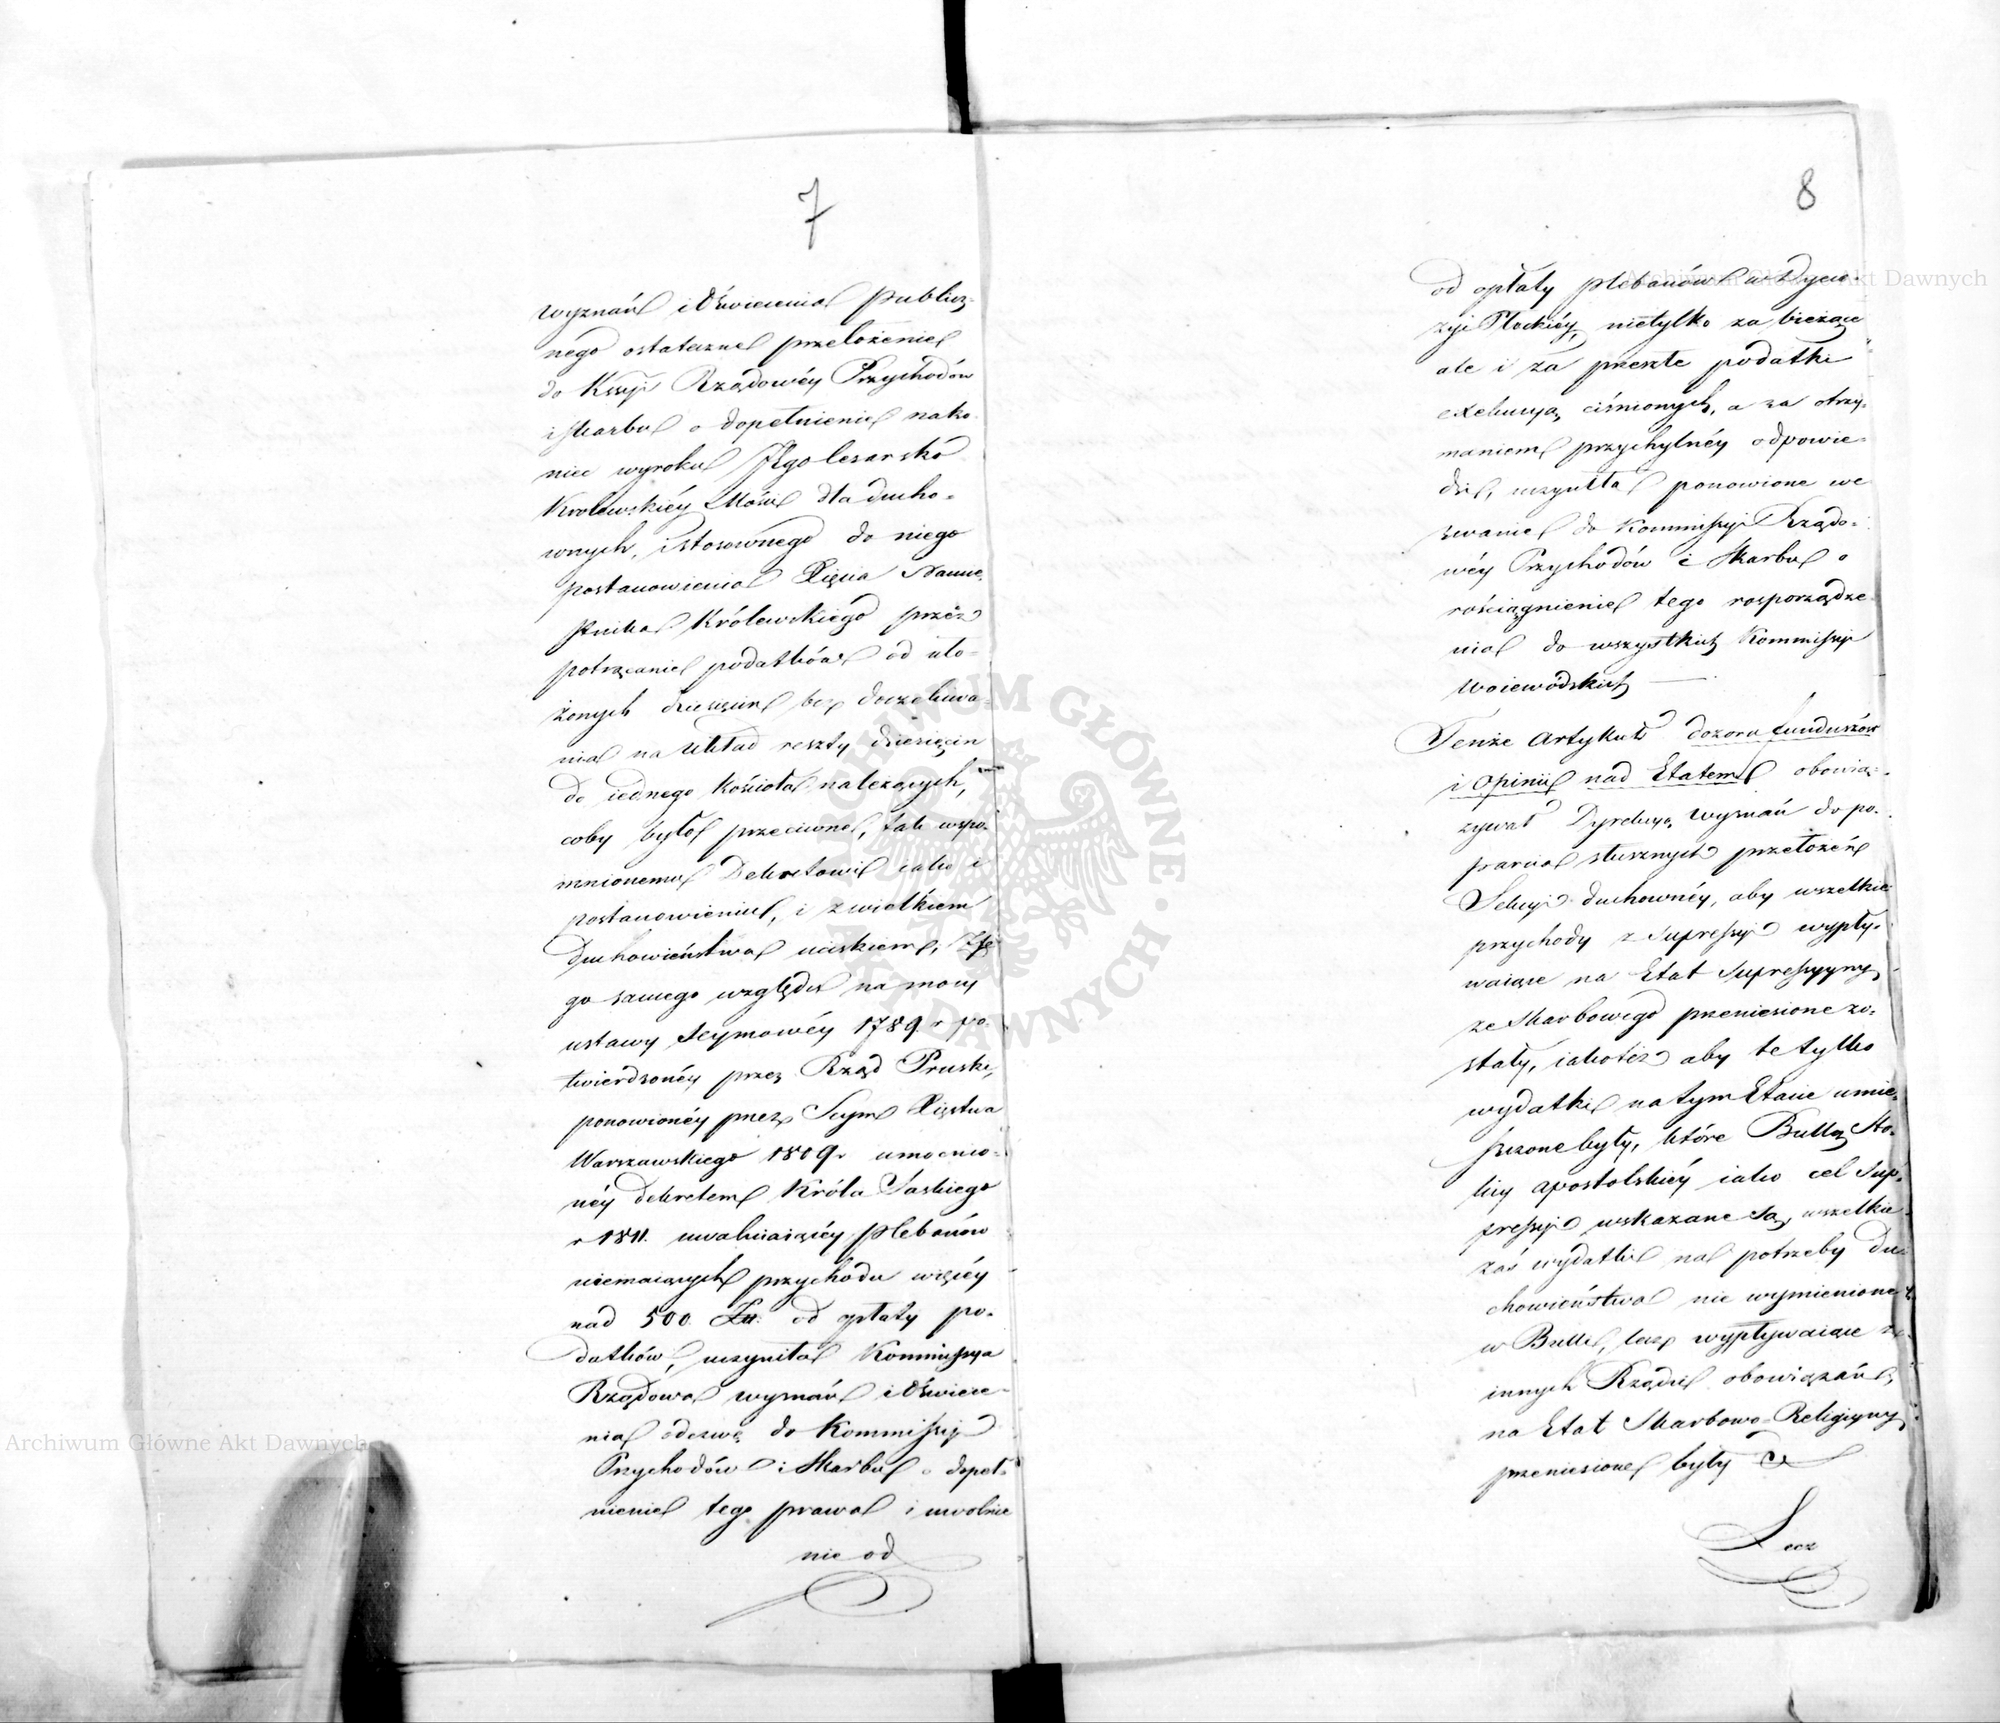 7
wyznań i Oświecenia publicz-
nego ostateczne przełożenie
do Kssyi Rządowéy Przychodów
i Skarbu o dopełnienie nako-
niec wyroku Jego Cesarsko
Królewskiéy Mości dla ducho-
wnych, i stosownego do niego
postanowienia Xięcia Namie-
stnika Królewskiego przez
potrącanie podatków od uło-
żonych dziesięcin bez doczekiwa-
nia na układ reszty dziesięcin
do iednego kościoła należących,
coby było przeciwne, tak wspo-
mnionemu Dekretowi iako i
postanowieniu, i z wielkiem
duchowieństwa uciskiem; Z te
go samego względu na mocy
ustawy Seymowéy 1789. r po-
twierdzonéy przez Rząd Pruski,
ponowionéy przez Seym Xięstwa
Warszawskiego 1809 r umocnio-
néy dekretem Króla Saskiego
r 1811. uwalniaiącéy plebanów
niemaiących przychodu więcéy
nad 500 Zł. od opłaty po-
datków, uczyniła Kommissya
Rządowa wyznań i Oświece-
nia odezwę do Kommissyi
Przychodów i Skarbu o dopeł-
nienie tego prawa i uwolnie
nie od
8
od opłaty plebanów w Dyece-
zyi Płockiéy, nietylko za bieżące
ale i za przeszłe podatki
exekucyą ciśnionych, a za otrzy-
maniem przychylnéy odpowie-
dzi, uczyniła ponowione we
zwanie do Kommissyi Rządo-
wéy Przychodów i Skarbu o
rościągnienie tego rosporządze-
nia do wszystkich Kommissyi
Woiewódskich —
Tenże Artykuł dozoru funduszów
i Opinii nad Etatem obowią-
zywał Dyrekcyą Wyznań do po-
parcia słusznych przełożeń
Sekcyi duchownéy, aby wszelkie
przychody z Supressyi wypły-
waiące na Etat Supressyyny
ze Skarbowego przeniesione zo-
stały, iakoteż aby te tylko
wydatki na tym Etacie umie-
szczone były, które Bullą Sto-
licy apostolskiéy iako cel Sup-
pressyi wskazane są, wszelkie
zaś wydatki na potrzeby Du-
chowieństwa nie wymienione
w Bulli, lecz wypływaiące z
innych Rządu obowiązań,
na Etat Skarbowo-Religiyny
przeniesione były
Lecz
Archiwum Główne Akt Dawnych
Archiwum Główne Akt Dawnych
ARCHIWUM GŁÓWNE AKT DAWNYCH